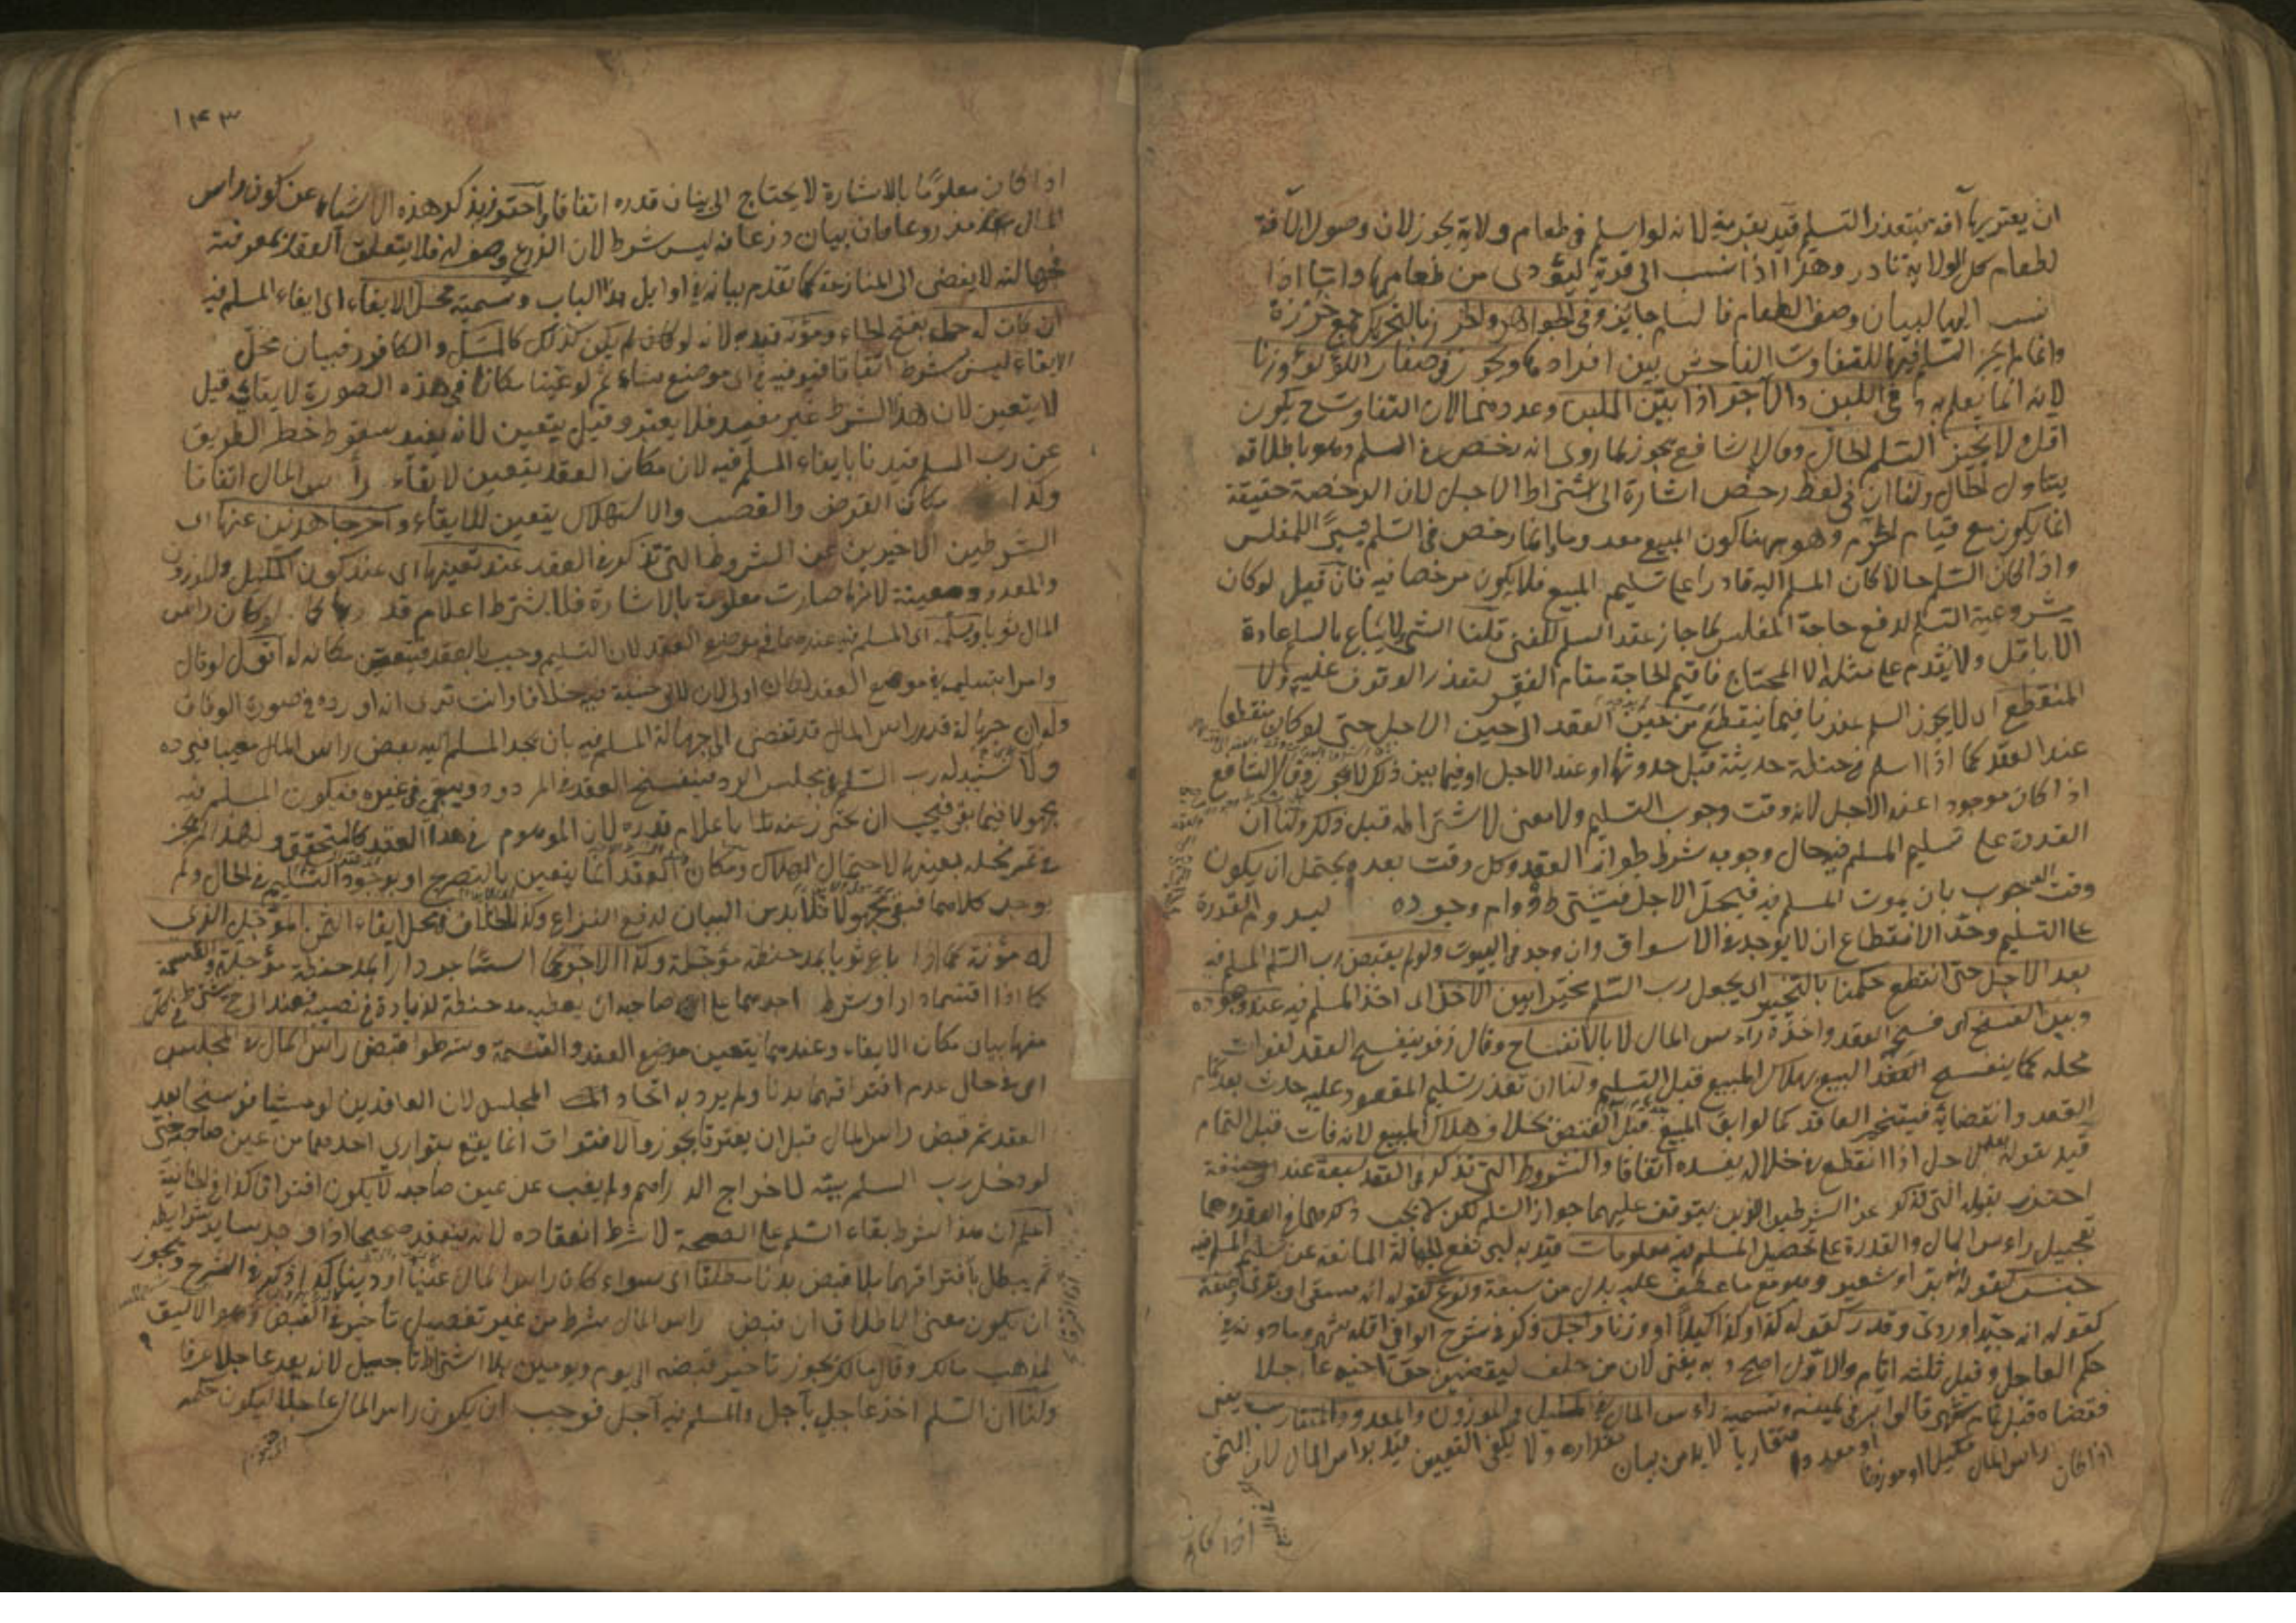 ان يعتريها آفة فيتعذر التسليم قيد بقرية لانه لو اسلم في طعام ولاية يجوز لان وصول الآفة
لطعام كل الولاية نادر وهذا اذا نسب الى قرية ليؤدى من طعامها واما اذا
نسب اليها لبيان وصف الطعام فالسلم جايز وفي الجواهر والخرز بالتحريك جمع خرزة
وانما لم يجز السلم فيها للتفاوت الفاحش بين افرادها ويجوز في صغار اللؤلؤ وزنا
لانه انما يعلم به وفي اللبن والآجر اذا بين الملبن وعددهما لان التفاوت ح يكون
اقل ولا يجيز السلم الحال وقال الشافعي يجوز لما روى انه رخص في السلم وهو باطلاقه
يتناول الحال ولنا ان في لفظ رخص اشارة الى اشتراط الاجل لان الرخصة حقيقة
انما يكون مع قيام المحرم وهو ههنا كون المبيع معدوما وانما رخص في السلم تيسيرا للمفلس
واذا كان السلم حالا كان المسلم اليه قادرا على تسليم المبيع فلا يكون مرخصا فيه فان قيل لو كان
مشروعية السلم لدفع حاجة المفلس لما جاز عقد السلم للغني قلنا الشيء لا يباع بالسلم عادة
الا باقل ولا يقدم على مثله الا المحتاج فاقيم الحاجة مقام الفقر لتعذر الوقوف عليه ولا
المنقطع اى لا يجوز السلم عندنا فيما ينقطع من حين العقد الى حين الاجل حتى لو كان منقطعا
عند العقد كما اذا اسلم في حنطة حديثة قبل حدوثها او عند الاجل او فيما بين ذلك لا يجوز وقال الشافعي
اذا كان موجودا عند الاجل لانه وقت وجوب التسليم ولا معنى لاشتراطه قبل ذلك ولنا ان
القدرة على تسليم المسلم فيه حال وجوبه شرط جواز العقد وكل وقت بعده يحتمل ان يكون
وقت الوجوب بان يموت المسلم فيه فيحل الاجل فيشترط دوام وجوده ليدوم القدرة
على التسليم وحد الانقطاع ان لا يوجد في الاسواق وان وجد في البيوت ولو لم يقبض رب السلم المسلم فيه
بعد الاجل حتى انقطع حكمنا بالتخيير اى يجعل رب السلم مخيرا بين الاخذ اى اخذ المسلم فيه عند وجوده
وبين الفسخ اى فسخ العقد واخذه راس المال لا بالانفساخ وقال زفر ينفسخ العقد لفوات
محله كما ينفسخ العقد البيع بهلاك المبيع قبل التسليم ولنا ان تعذر تسليم المقصود عليه حدث بعد تمام
العقد وانقضائه فيتخير العاقد كما لو ابق المبيع قبل القبض بخلاف هلاك المبيع لانه فات قبل التمام
قيد بقوله حل اذا انقطع في خلاله يفسده اتفاقا والشروط التي تذكر في العقد سبعة عند ابي حنيفة
احترز بقوله التي تذكر عن الشرطين الذين يتوقف عليهما جواز السلم لكن لا يجب ذكرهما في العقد وهما
تعجيل راس المال والقدرة على تحصيل المسلم فيه معلومات قيد به لينتفي الجهالة المانعة عن تسليم المسلم فيه
جنس كقوله انه بر او شعير وهو مع ما عطف عليه بدل من سبعة ونوع كقوله انه سقى او برى وصفة
كقوله انه جيد او ردى وقدر كقوله كذا وكذا كيلا او وزنا واجل ذكر في شرح الوافي اقله شهر وما دونه في
حكم العاجل وقيل ثلثة ايام والاول اصح وبه يفتى لان من حلف ليقضين حق اخيه عاجلا
فقضاه قبل تمام شهر قالوا بر في يمينه وتسمية راس المال في المكيل والموزون والمعدود المتقارب يعنى
اذا كان راس المال مكيلا او موزونا او معدودا متقاربا لا بد من بيان مقداره ولا يكفي التعيين قيد براس المال لان الثمن
اذا كان
١٤٣
اذا كان معلوما بالاشارة لا يحتاج الى بيان قدره اتفاقا واحترز بذكر هذه الاشياء عن كون راس
المال مذروعا فان بيان ذرعانه ليس شرط لان الذرع وصف له فلا يتعلق العقد بمعرفته
فجهالته لا يفضى الى المنازعة كما تقدم بيانه في اوايل هذا الباب وتسمية محل الايفاء اى ايفاء المسلم فيه
ان كان له حمل بفتح الحاء ومؤنة قيد به لانه لو كان لم يكن كذلك كالمسك والكافور فبيان محل
الايفاء ليس بشرط اتفاقا فيوفيه في اى موضع شاء ثم لو عينا مكانا في هذه الصورة لايفائه قيل
لا يتعين لان هذا الشرط غير مفيد فلا يعتبر وقيل يتعين لانه يفيد سقوط خطر الطريق
عن رب السلم قيدنا بايفاء المسلم فيه لان مكان العقد يتعين لايفاء راس المال اتفاقا
وكذا مكان القرض والغصب والاستهلاك يتعين للايفاء واخرجا هذين عنها اى
الشرطين الاخيرين عن الشروط التي تذكر في العقد عند تعينهما اى عند كون المكيل والموزون
والمعدود معينة لانها صارت معلومة بالاشارة فلا يشترط اعلام قدرها كما لو كان راس
المال ثوبا ويسلمه اى المسلم فيه عندهما في موضع العقد لان التسليم وجب بالعقد فيتعين مكانه له اقول لو قال
وامرا بتسليمه في موضع العقد لكان اولى لان لابي حنيفة فيه خلافا وانت ترى انه اورده في صورة الوفاق
وله ان جهالة قدر راس المال قد تفضى الى جهالة المسلم فيه بان يجد المسلم اليه بعض راس المال معيبا فيرده
ولا يستبدله رب السلم في مجلس الرد فينفسخ العقد في المردود ويبقى في غيره فيكون المسلم فيه
مجهولا فيما بقي فيجب ان يحترز عن مثله باعلام قدره لان الموهوم في هذا العقد كالمتحقق ولهذا لم يجز
في ثمر نخله بعينها لاحتمال الهلاك ومكان العقد انما يتعين بالتصريح او بوجود التسليم في الحال ولم
يوجد كلاهما فبقى مجهولا فلا بد من البيان لدفع النزاع وكذا الخلاف في محل ايفاء الثمن المؤجل الذى
له مؤنة كما اذا باع ثوبا بمد حنطة مؤجلة وكذا الاجرة كما استاجر دارا بمد حنطة مؤجلة والقسمة
كما اذا اقتسما دارا وشرط احدهما على صاحبه ان يعطيه مد حنطة لزيادة في نصيبه فعند ابي ح يشترط في كل
منها بيان مكان الايفاء وعندهما يتعين موضع العقد والقسمة وشرطوا قبض راس المال في المجلس
اى في حال عدم افتراقهما بدنا ولم يرد به اتحاد المجلس لان العاقدين لو مشيا فرسخا بعد
العقد ثم قبض راس المال قبل ان يفترقا يجوز والافتراق انما يقع بتوارى احدهما من عين صاحبه حتى
لو دخل رب السلم بيته لاخراج الدراهم ولم يغب عن عين صاحبه لا يكون افتراقا كذا في الخانية
اعلم ان هذا شرط بقاء السلم على الصحة لا شرط انعقاده لانه ينعقد صحيحا اذا وجد ساير شرايطه
ثم يبطل بافتراقهما بلا قبض بدنا مطلقا اى سواء كان راس المال عينا او دينا كذا ذكر في الشرح ويجوز
ان يكون معنى الاطلاق ان قبض راس المال شرط من غير تفصيل تأخير في القبض وهو الاليق
لمذهب مالك وقال مالك يجوز تاخير قبضه الى يوم ويومين بلا اشتراط تاجيل لانه يعد عاجلا عرفا
ولنا ان السلم اخذ عاجل بآجل والمسلم فيه آجل فوجب ان يكون راس المال عاجلا ليكون حكمه